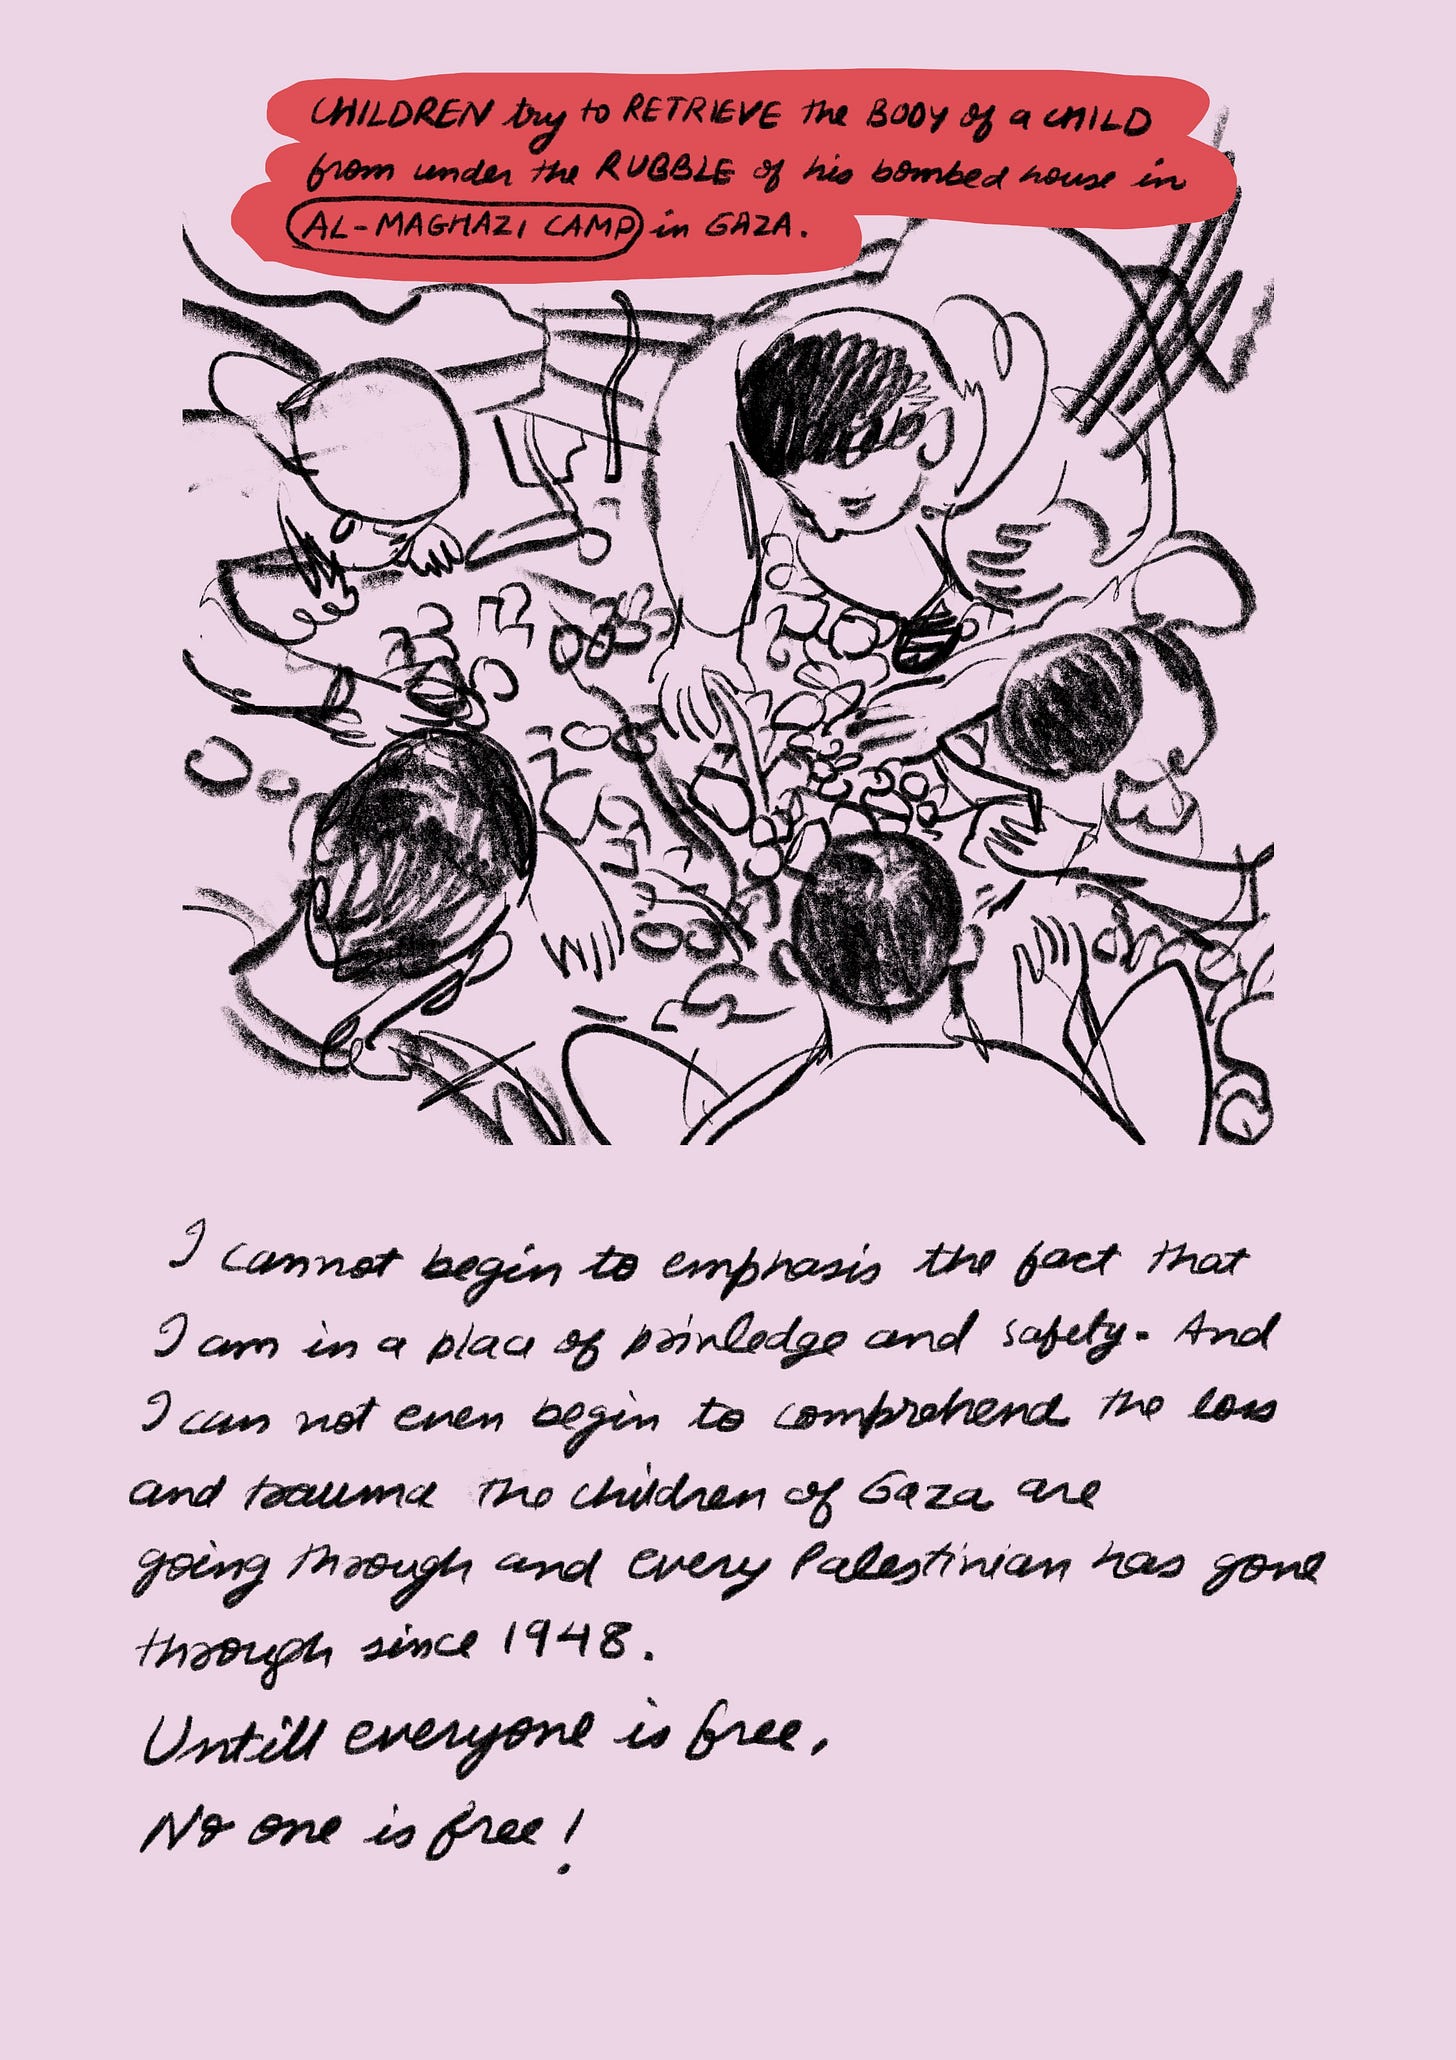 CHILDREN try to RETRIEVE the BODY of a CHILD
from under the RUBBLE of his bombed house in
AL-MAGHAZI CAMP in GAZA.
I cannot begin to emphasis the fact that
I am in a place of privledge and safety. And
I can not even begin to comprehend the loss
and trauma the children of Gaza are
going through and every Palestinian has gone
through since 1948.
Untill everyone is free,
No one is free!